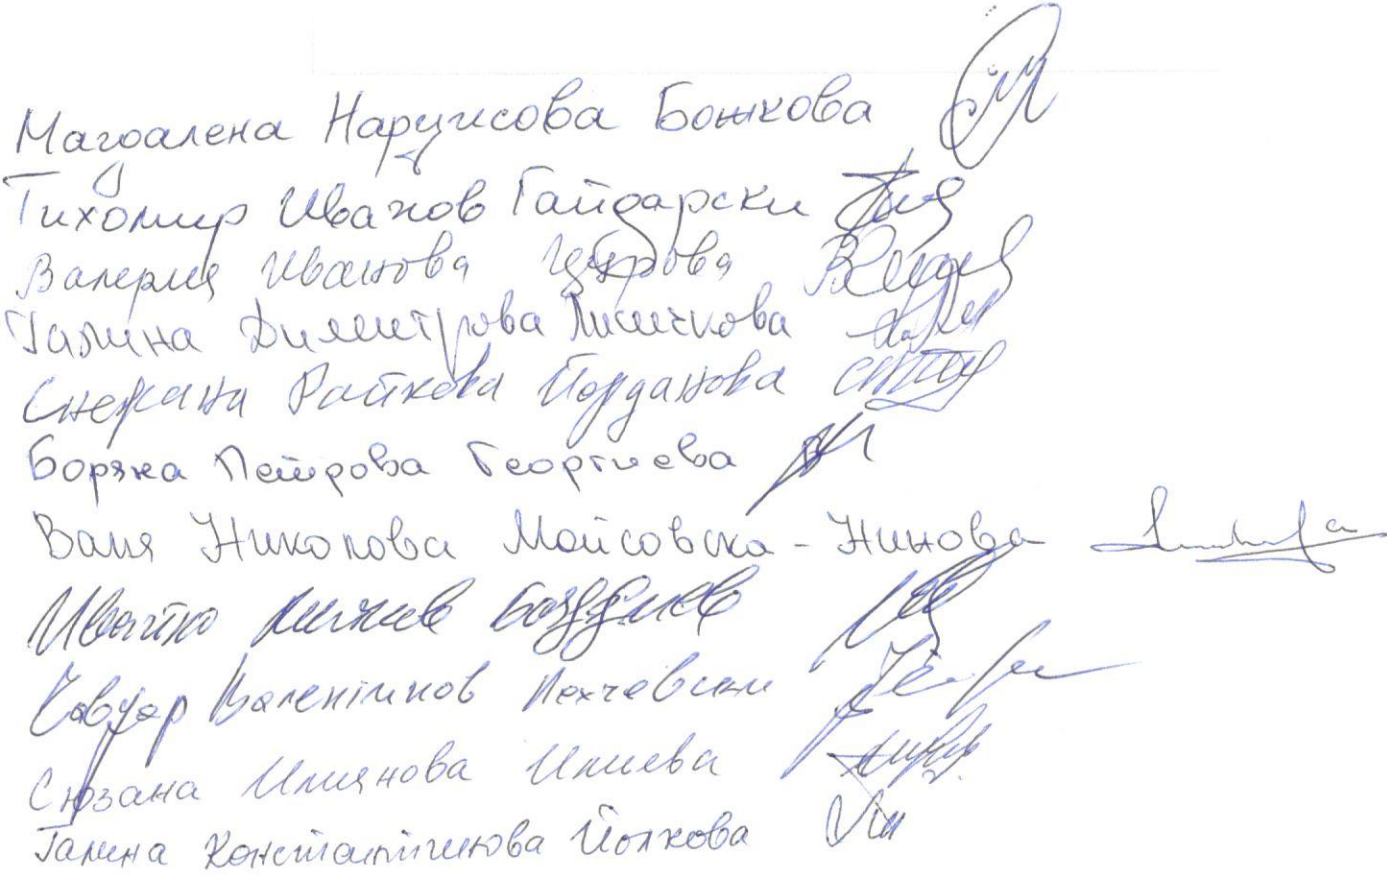 Магдалена Нарцисова Божкова
Тихомир Иванов Гайдарски
Валерия Иванова
Галина Димитрова Лисичкова
Снежана Райкова Йорданова
Боряна Петрова Георгиева
Ваня Николова Мойсовска - Нинова
Ивайло
Чавдар Валентинов
Сюзана Илиянова Илиева
Галина Константинова Йолкова